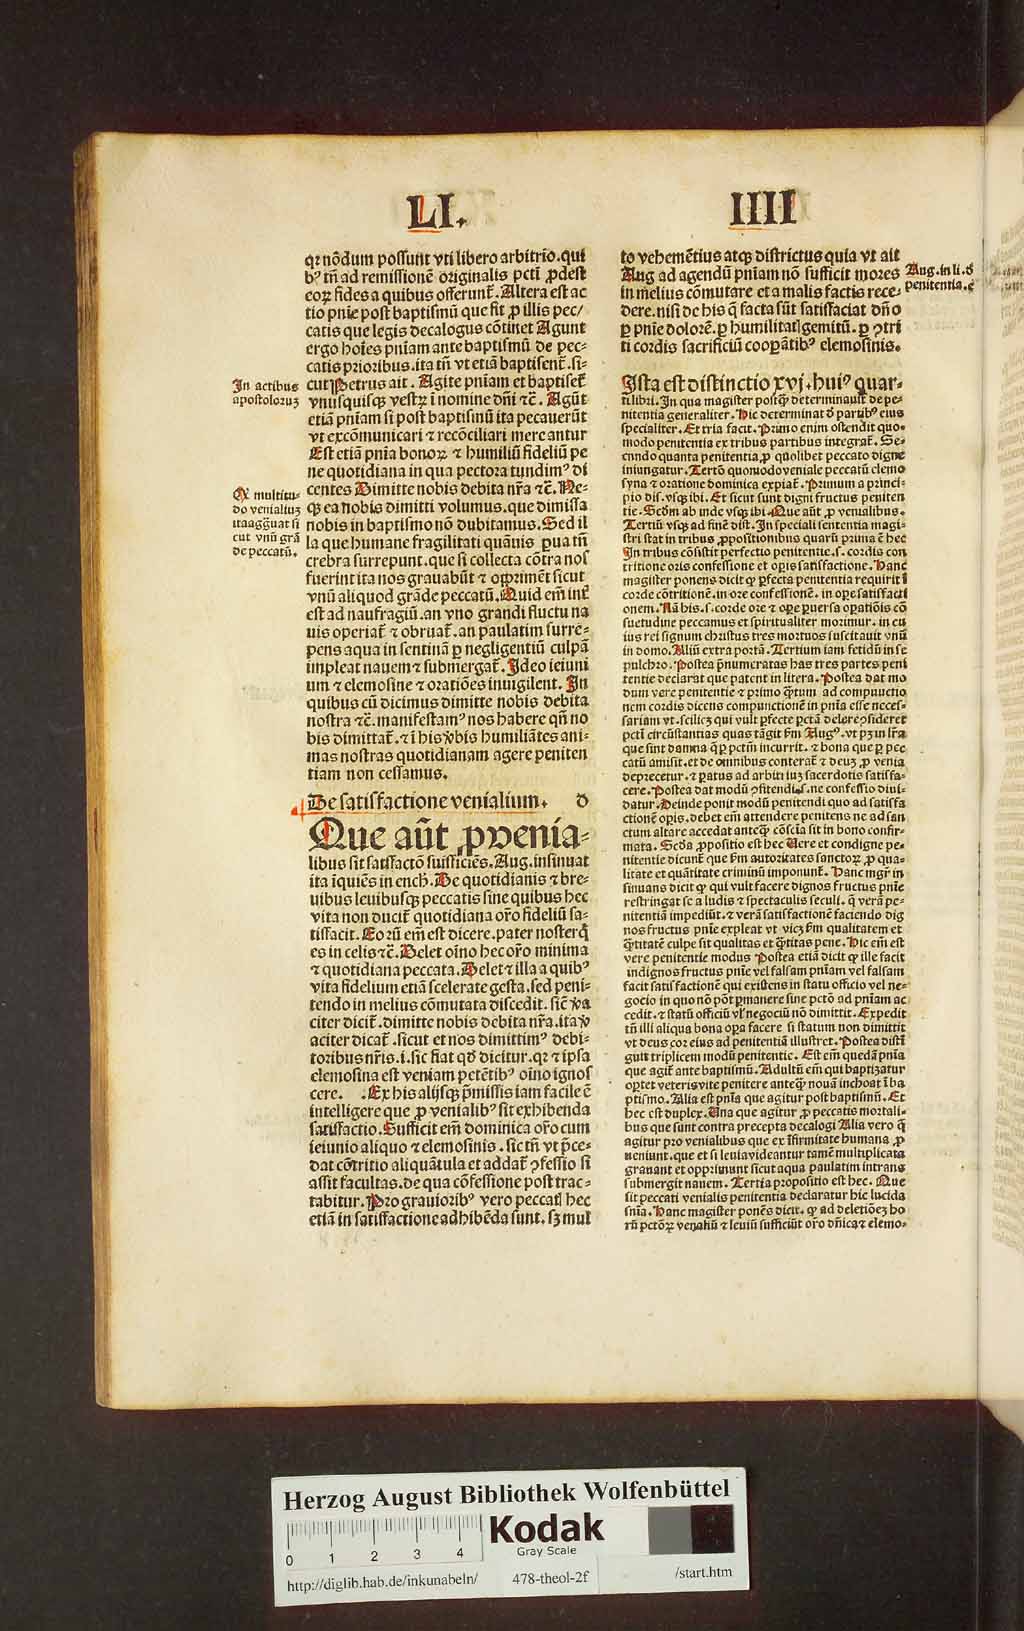 LI.
IIII
qꝛ nōdum poſſunt vti libero arbitrio. qui
bꝰ tñ ad remiſſionē originalis pcti ꝓdeſt
eoꝝ fides a quibus offerunt̄. Altera eſt ac
tio pnie poſt baptiſmū que fit ꝓ illis pec/
catis que legis decalogus cōtinet Agunt
ergo hoīes pniam ante baptiſmū de pec-
catis prioribus. ita tñ vt etiā baptiſent̄. ſi-
cut Petrus ait. Agite pniam et baptiſet̄
vnuſquiſqꝫ veſtꝝ i nomine dñi ⁊c̄. Agūt
etiā pniam ſi poſt baptiſmū ita pecauerūt
vt excōmunicari ⁊ recōciliari mereantur
Eſt etiā pnia bonoꝝ ⁊ humiliū fideliū pe
ne quotidiana in qua pectora tundimꝰ di
centes Dimitte nobis debita nr̄a ⁊c̄. Ne-
qꝫ ea nobis dimitti volumus. que dimiſſa
nobis in baptiſmo nō dubitamus. Sed il
la que humane fragilitati quāuis ꝑua tñ
crebra ſurrepunt. que ſi collecta cōtra nos
fuerint ita nos grauabūt ⁊ opprimēt ſicut
vnū aliquod grāde peccatū. Quid em̄ int̄
eſt ad naufragiū. an vno grandi fluctu na
uis operiat̄ ⁊ obruat̄. an paulatim ſurre-
pens aqua in ſentinā ꝑ negligentiū culpā
impleat nauem ⁊ ſubmergat̄. Ideo ieiuni
um ⁊ elemoſine ⁊ oratiōes inuigilent. In
quibus cū dicimus dimitte nobis debita
noſtra ⁊c̄. manifeſtamꝰ nos habere qñ no
bis dimittat̄. ⁊ i his v̾bis humiliātes ani-
mas noſtras quotidianam agere peniten
tiam non ceſſamus.
De ſatiſfactione venialium. d
Que aūt ꝓ venia-
libus ſit ſatiſfactō ſufficiēs. Aug. inſinuat
ita īquiēs in ench. De quotidianis ⁊ bre-
uibus leuibuſqꝫ peccatis ſine quibus hec
vita non ducit̄ quotidiana or̄o fideliū ſa-
tiſfacit. Eoꝝ em̄ eſt dicere. pater noſter ꝗ
es in celis ⁊c̄. Delet oīno hec or̄o minima
⁊ quotidiana peccata. Delet ⁊ illa a quibꝰ
vita fidelium etiā ſcelerate geſta. ſed peni-
tendo in melius cōmutata diſcedit. ſic̄ v̾a
citer dicit̄. dimitte nobis debita nr̄a. ita v̾
aciter dicat̄. ſicut et nos dimittimꝰ debi-
toribus nr̄is. i. ſic fiat qd̄ dicitur. qꝛ ⁊ ipſa
elemoſina eſt veniam petētibꝰ oīno ignoſ
cere. Ex his alijſqꝫ p̄miſſis iam facile ē
intelligere que ꝓ venialibꝰ ſit exhibenda
ſatiſfactio. Sufficit em̄ dominica or̄o cum
ieiunio aliquo ⁊ elemoſinis. ſic tñ vt p̄ce-
dat cōtritio aliquātula et addat̄ ꝯfeſſio ſi
aſſit facultas. de qua cōfeſſione poſt trac-
tabitur. Pro grauioribꝰ vero peccatꝭ hec
etiā in ſatiſfactione adhibēda ſunt. ſꝫ mul
In actibus
apoſtoloꝛuꝫ
Qꝫ multitu-
do venialiuꝫ
ita aggͣuat ſi
cut vnū grā
de peccatū.
to vehemētius atqꝫ diſtrictus quia vt ait
Aug ad agendū pniam nō ſufficit mores
in melius cōmutare et a malis factis rece-
dere. niſi de his ꝗ facta ſūt ſatiſfaciat dño
ꝑ pnie dolorē. ꝑ humilitatꝭ gemitū. ꝑ ꝯtri
ti cordis ſacrificiū cooꝑātibꝰ elemoſinis.
Aug. in li. d̾
penitentia. c̄
Iſta eſt diſtinctio xvj. huiꝰ quar-
ti libri. In qua magiſter poſtꝙ̄ determinauit de pe-
nitentia generaliter. Hic determinat d̾ partibꝰ eius
ſpecialiter. Et tria facit. Primo enim oſtendit quo-
modo penitentia ex tribus partibus integrat̄. Se-
cundo quanta penitentia ꝓ quolibet peccato digne
iniungatur. Tertō quomodo veniale peccatū elemo
ſyna ⁊ oratione dominica expiat̄. Primum a princi-
pio diſ. vſqꝫ ibi. Et ſicut ſunt digni fructus peniten
tie. Scd̄m ab inde vſqꝫ ibi. Que aūt ꝓ venialibus.
Tertiū vſqꝫ ad finē diſt. In ſpeciali ſententia magi-
ſtri ſtat in tribus ꝓpoſitionibus quarū prima ē hec
In tribus cōſiſtit perfectio penitentie. ſ. cordis con
tritione oris confeſſione et oꝑis ſatiſfactione. Hanc
magiſter ponens dicit ꝙ ꝑfecta penitentia requirit ī
corde cōtritionē. in ore confeſſionē. in oꝑe ſatiſfacti
onem. Nā his. ſ. corde ore ⁊ oꝑe ꝑuerſa oꝑatiōis cō
ſuetudine peccamus et ſpiritualiter morimur. in cu
ius rei ſignum chriſtus tres mortuos ſuſcitauit vnū
in domo. Aliū extra portā. Tertium iam fetidū in ſe
pulchro. Poſtea p̄numeratas has tres partes peni
tentie declarat que patent in litera. Poſtea dat mo
dum vere penitentie ⁊ primo q̄tum ad compunctio
nem cordis dicens compunctionē in pnia eſſe neceſ-
ſariam vt. ſcilicꝫ qui vult ꝑfecte pctā delere ꝯſideret
pcti circūſtantias quas tāgit ẜm Augꝰ. vt pꝫ in lr̄a
que ſint damna ꝙ̄ ꝑ pctm̄ incurrit. ⁊ bona que ꝑ pec
catū amiſit. et de omnibus conterat̄ ⁊ deuꝫ ꝓ venia
deprecetur. ⁊ ꝑatus ad arbitriuꝫ ſacerdotis ſatiſfa-
cere. Poſtea dat modū ꝯfitendi. ſ. ne confeſſio diui-
datur. Deinde ponit modū penitendi quo ad ſatiſfa
ctionē oꝑis. debet em̄ attendere penitens ne ad ſan
ctum altare accedat anteꝙ̄ cōſcīa ſit in bono confir-
mata. Scd̄a ꝓpoſitio eſt hec Uere et condigne pe-
nitentie dicunt̄ que ẜm autoritates ſanctoꝝ ꝓ qua-
litate et quātitate criminū imponunt̄. Hanc mgr̄ in
ſinuans dicit ꝙ qui vult facere dignos fructus pnie
reſtringat ſe a ludis ⁊ ſpectaculis ſeculi. ꝗ verā pe-
nitentiā impediūt. ⁊ verā ſatiſfactionē faciendo dig
nos fructus pnie expleat vt vicꝫ ẜm qualitatem et
q̄titatē culpe ſit qualitas et q̄titas pene. Hic em̄ eſt
vere penitentie modus Poſtea etiā dicit ꝙ ille facit
indignos fructus pnie vel falſam pniam vel falſam
facit ſatiſfactionē qui exiſtens in ſtatu officio vel ne-
gocio in quo nō pōt ꝑmanere ſine pctō ad pniam ac
cedit. ⁊ ſtatū officiū vl̾ negociū nō dimittit. Expedit
tñ illi aliqua bona oꝑa facere ſi ſtatum non dimittit
vt deus cor eius ad penitentiā illuſtret. Poſtea diſti
guit triplicem modū penitentie. Eſt em̄ quedā pnia
que agit̄ ante baptiſmū. Adultū em̄ qui baptizatur
oꝑtet veteris vite penitere anteꝙ̄ nouā inchoat ī ba
ptiſmo. Alia eſt pnia que agitur poſt baptiſmū. Et
hec eſt duplex. Una que agitur ꝓ peccatis mortali-
bus que ſunt contra precepta decalogi Alia vero ꝗ
agitur pro venialibus que ex īfirmitate humana ꝓ
ueniunt. que et ſi leuia videantur tamē multiplicata
grauant et opprimunt ſicut aqua paulatim intrans
ſubmergit nauem. Tertia propoſitio eſt hec. Que
ſit peccati venialis penitentia declaratur hic lucida
ſnia. Hanc magiſter ponēs dicit. ꝙ ad deletiōeꝫ ho
rū pctōꝝ venaliū ⁊ leuiū ſufficiūt or̄o dñica ⁊ elemo-
Herzog August Bibliothek Wolfenbüttel
0 1 2 3 4
Kodak
Gray Scale
http://diglib.hab.de/inkunabeln/ 478-theol-2f /start.htm